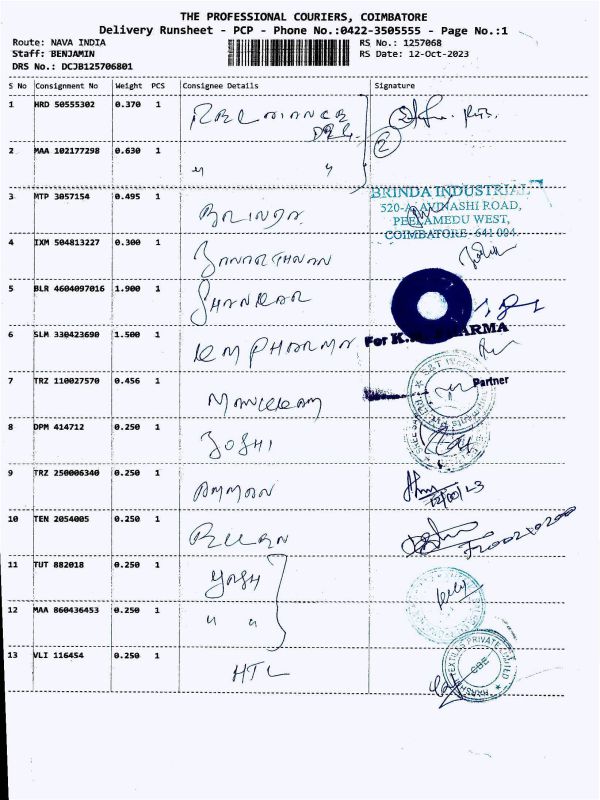 THE PROFESSIONAL COURIERS, COIMBATORE
Delivery Runsheet - PCP - Phone No.:0422-3505555 - Page No.:1
Route: NAVA INDIA RS No.: 1257068
Staff: BENJAMIN RS Date: 12-Oct-2023
DRS No.: DCJB125706801
S No Consignment No Weight PCS Consignee Details Signature
1 HRD 50555302 0.370 1 RELIANCE
2
2 MAA 102177298 0.630 1 " "
3 MTP 3057154 0.495 1 BRINDA
BRINDA INDUSTRIAL
520-A, AVINASHI ROAD,
PEELAMEDU WEST,
COIMBATORE - 641 004.
4 IXM 504813227 0.300 1 JANARTHNAN
5 BLR 4604097016 1.900 1 SHANKAR
6 SLM 330423690 1.500 1 KM PHARMA
For K.M. PHARMA
Partner
7 TRZ 110027570 0.456 1 MANICKAM
8 DPM 414712 0.250 1 JOSHI
9 TRZ 250006340 0.250 1 AMMAN
10 TEN 2054005 0.250 1
11 TUT 882018 0.250 1 YASH
12 MAA 860436453 0.250 1 " "
13 VLI 116454 0.250 1 HTL
TEXTILES PRIVATE LIMITED
CBE